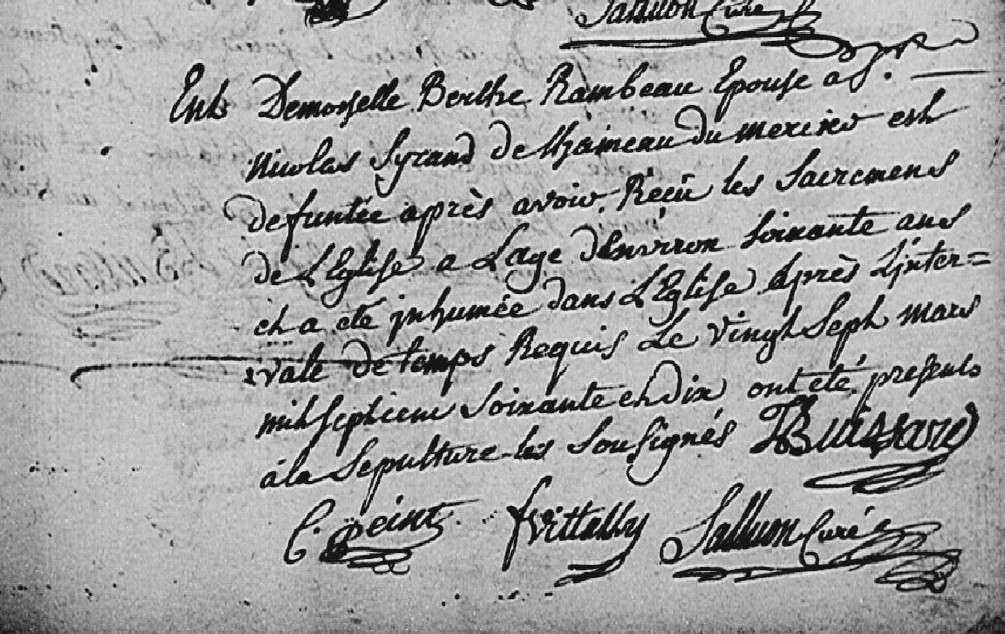 Salluon Curé
Ents Demoiselle Berthe Rambeau Epouse a S.
Nicolas Syrand de thameau du merino est
defuntée après avoir Récu les Sacremens
de L'Eglise a L'age d'Environ Soixante ans
et a été jnhumée dans L'Eglise après L'jnter=
vale de temps Requis Le vingt Sept mars
mil Septcent Soixante et dix ont été presents
à la Sepulture les Sousignés Buissard
C. peint fvittally Salluon Curé